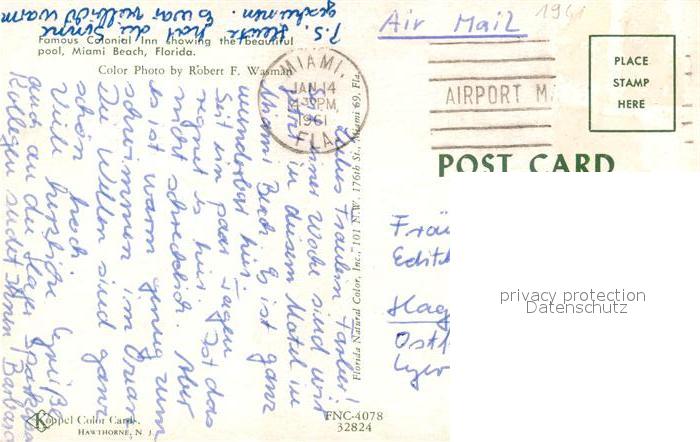 Air Mail
1961
P.S. Heute hat die Sonne
gescheinen. Es war vielleicht warm
Famous Colonial Inn showing the beautiful
pool, Miami Beach, Florida.
Color Photo by Robert F. Wasman
MIAMI,
JAN 14
PM
1961
FLA.
AIRPORT M.
PLACE
STAMP
HERE
POST CARD
Liebes Fräulein Farber!
Seit einer Woche sind wir
jetzt in diesem Motel in
Miami Bech. Es ist ganz
wunderbar hier.
Seit ein paar Tagen
regnet es hier. Ist das
nicht schrecklich. Aber
es ist warm genug zum
schwimmen im Ozean
Die Wellen sind ganz
schön hoch
Viele herzliche Grüße
auch an die Hager Sparkasse
Kollegen sendet Ihnen Barbara
Florida Natural Color, Inc., 101 N.W. 176th St., Miami 69, Fla.
Fräu
Edith
Hag
privacy protection
Datenschutz
Koppel Color Cards
HAWTHORNE, N. J.
FNC-4078
32824